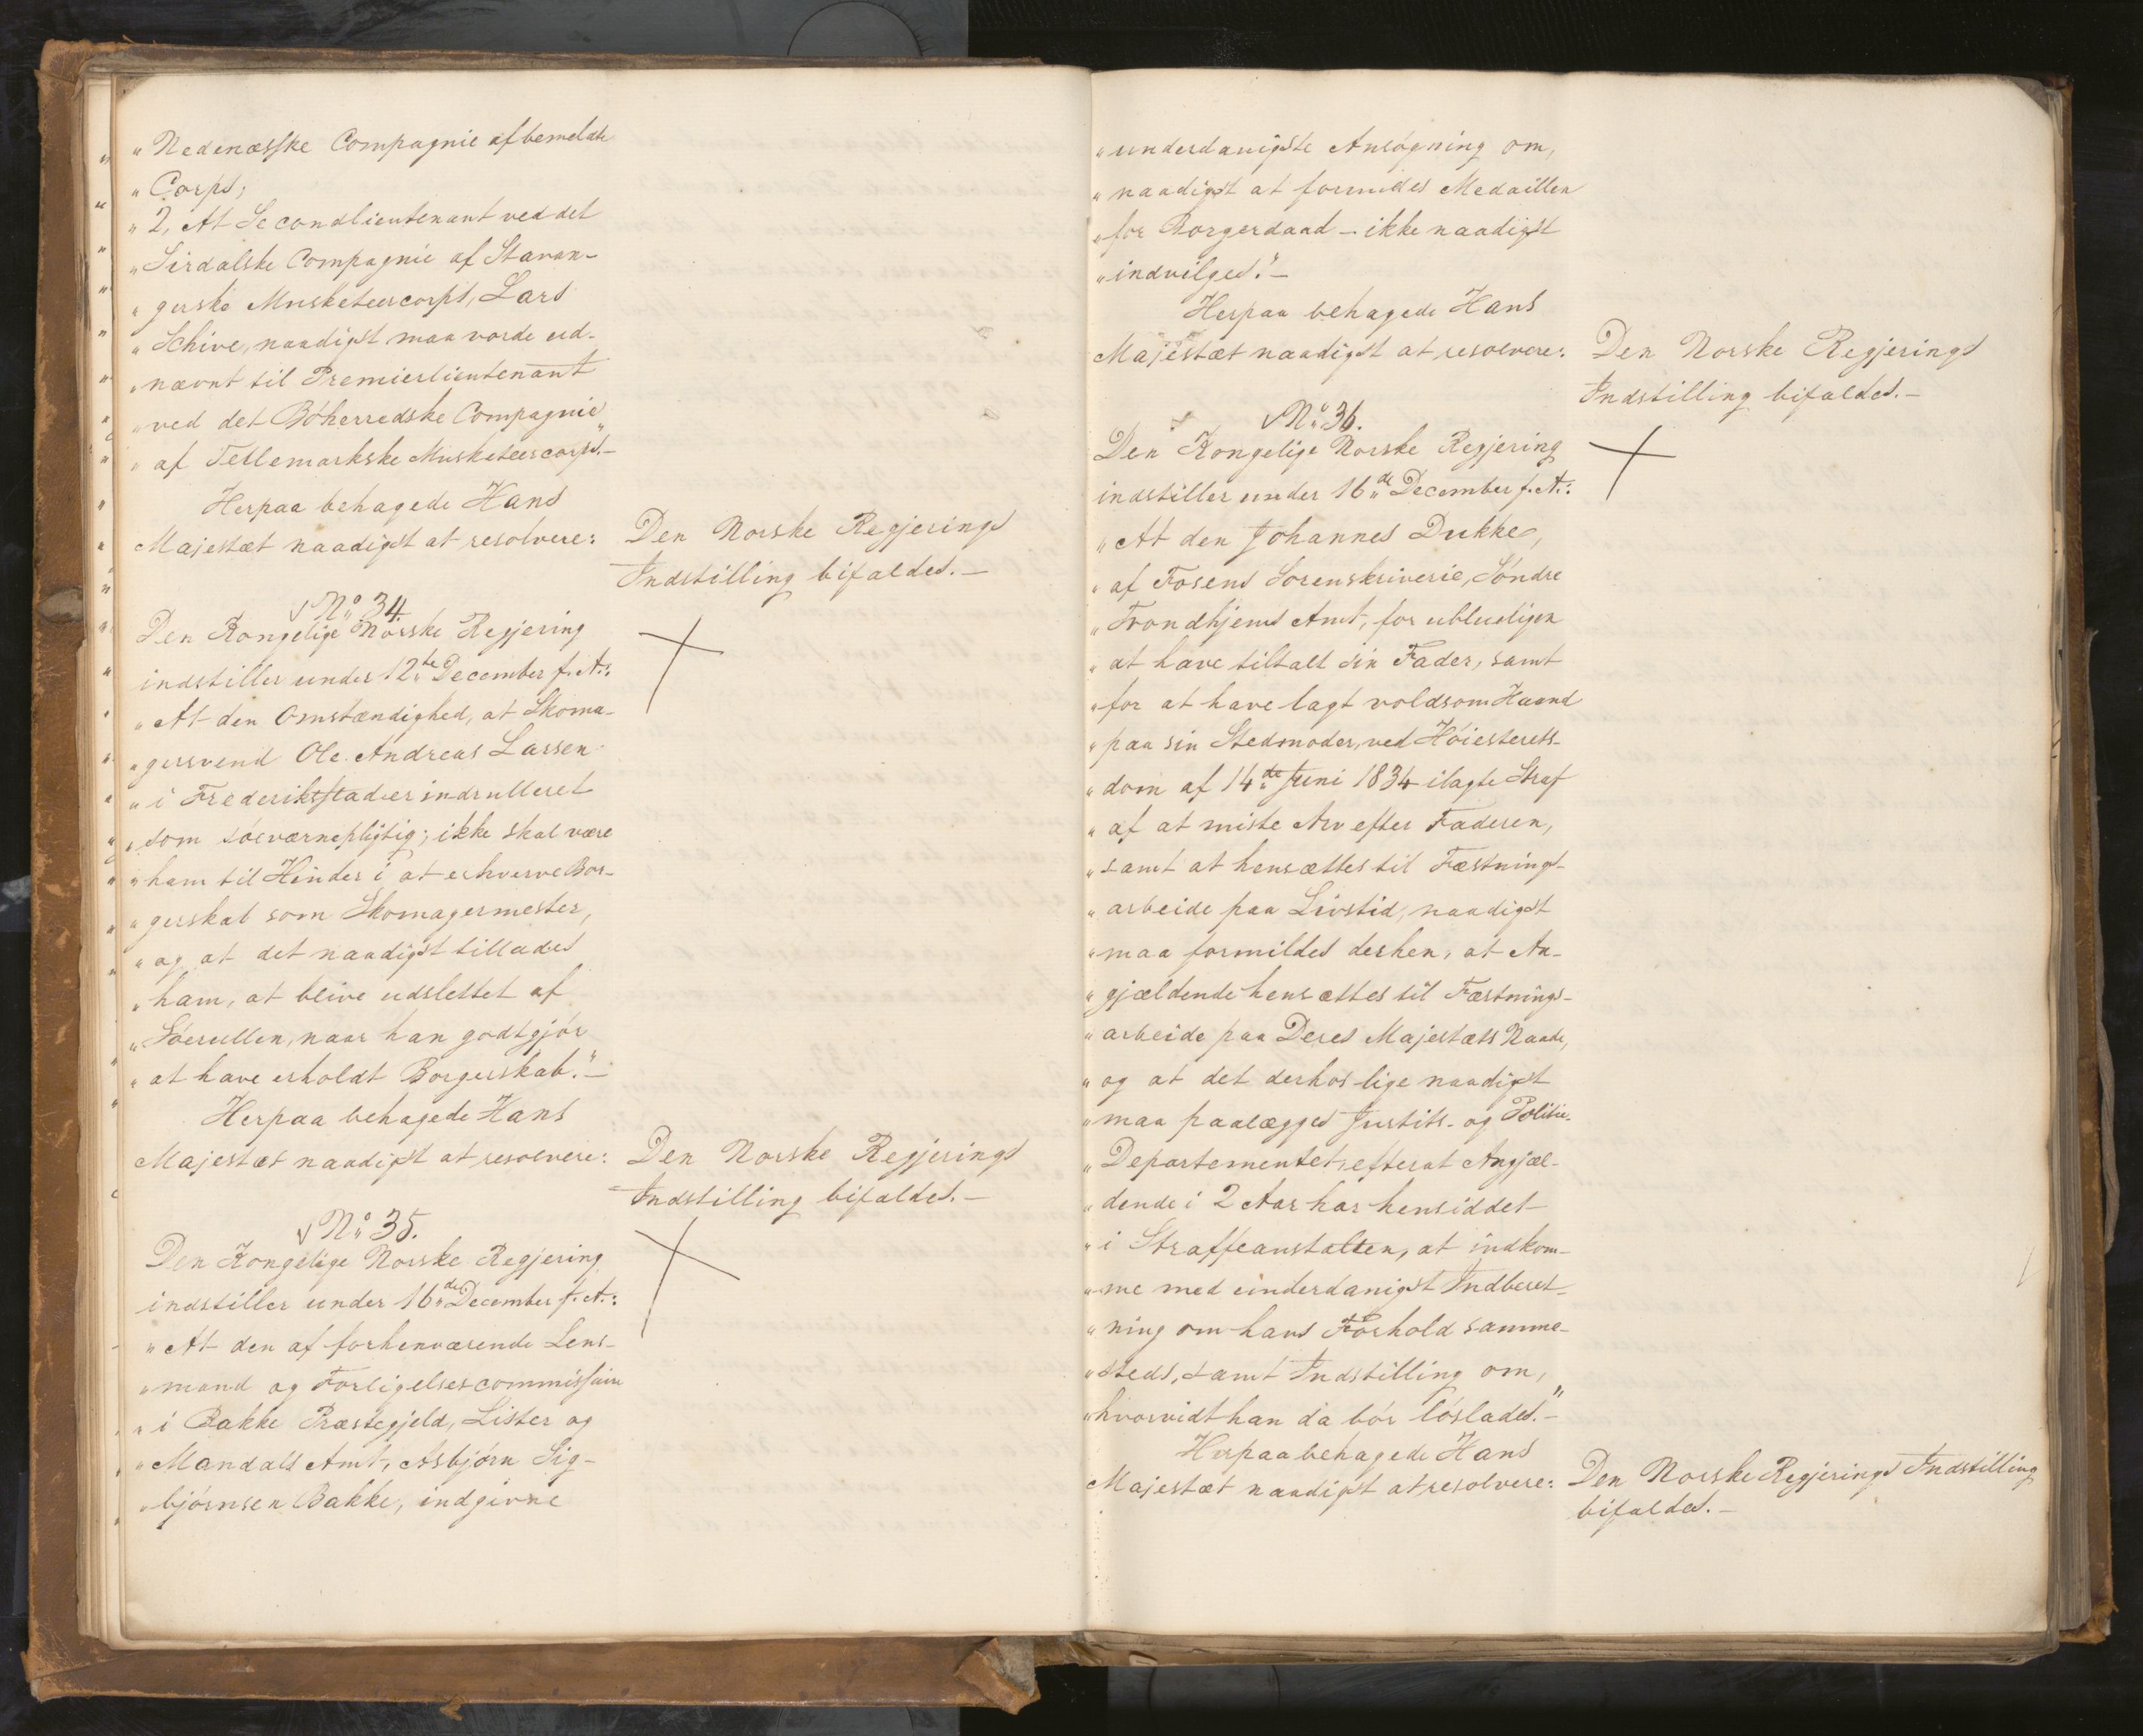 „Nedenæsske Compagnie af bemeldte
„Corps;
„2, At Secondlieutenant ved det
„Sirdalske Compagnie af Stavan-
„gerske Musketeercorps, Lars
„Schive, naadigst maa vorde ud-
„nævnt til Premierlieutenant
„ved det Böherredske Compagnie
„af Tellemarkske Musketeercorps."-
Herpaa behagede Hans
Majestæt naadigst at resolvere:
Den Norske Regjerings
Indstilling bifaldes.-
No 34.
Den Kongelige Norske Regjering
indstiller under 12te December f. A.:
„At den Omstændighed, at Skoma-
„gersvend Ole Andreas Larsen
„i Frederiksstad er indrulleret
„som söeværnepligtig; ikke skal være
„ham til Hinder i at erhverve Bor-
„gerskab som Skomagermester,
„og at det naadigst tillades
„ham, at blive udslettet af
„Söerullen, naar han godtgjör
„at have erholdt Borgerskab."-
Herpaa behagede Hans
Majestæt naadigst at resolvere:
Den Norske Regjerings
Indstilling bifaldes.-
No 35.
Den Kongelige Norske Regjering
indstiller under 16de December f. A.:
„At den af forhenværende Lens-
„mand og Forligelsescommissair
„i Bakke Præstegjeld, Lister og
„Mandals Amt, Asbjørn Sig-
„björnsen Bakke, indgivne
„underdanigste Ansögning om,
„naadigst at forundes Medaillen
„for Borgerdaad - ikke naadigst
„indvilges."-
Herpaa behagede Hans
Majestæt naadigst at resolvere:
Den Norske Regjerings
Indstilling bifaldes.-
No 36.
Den Kongelige Norske Regjering
indstiller under 16de December f. A.:
„At den Johannes Dukke,
„af Fosens Sorenskriverie, Söndre
„Trondhjems Amt, for ublueligen
„at have tiltalt sin Fader, samt
„for at have lagt voldsom Haand
„paa sin Stedmoder, ved Höiesterets-
„dom af 14de Juni 1834 ilagte Straf
„af at miste Arv efter Faderen,
„samt at hensættes til Fæstnings-
„arbeide paa Livstid, naadigst
„maa formildes derhen, at An-
„gjældende hensættes til Fæstnings-
„arbeide paa Deres Majestæts Naade,
„og at det derhos lige naadigst
„maa paalægges Justits- og Politie-
„Departementet, efterat Angjæl-
„dende i 2 Aar har hensiddet
„i Straffeanstalten, at indkom-
„me med underdanigst Indberet-
„ning om hans Forhold samme-
„steds, samt Indstilling om,
„hvorvidt han da bör löslades."-
Herpaa behagede Hans
Majestæt naadigst at resolvere:
Den Norske Regjerings Indstilling
bifaldes.-